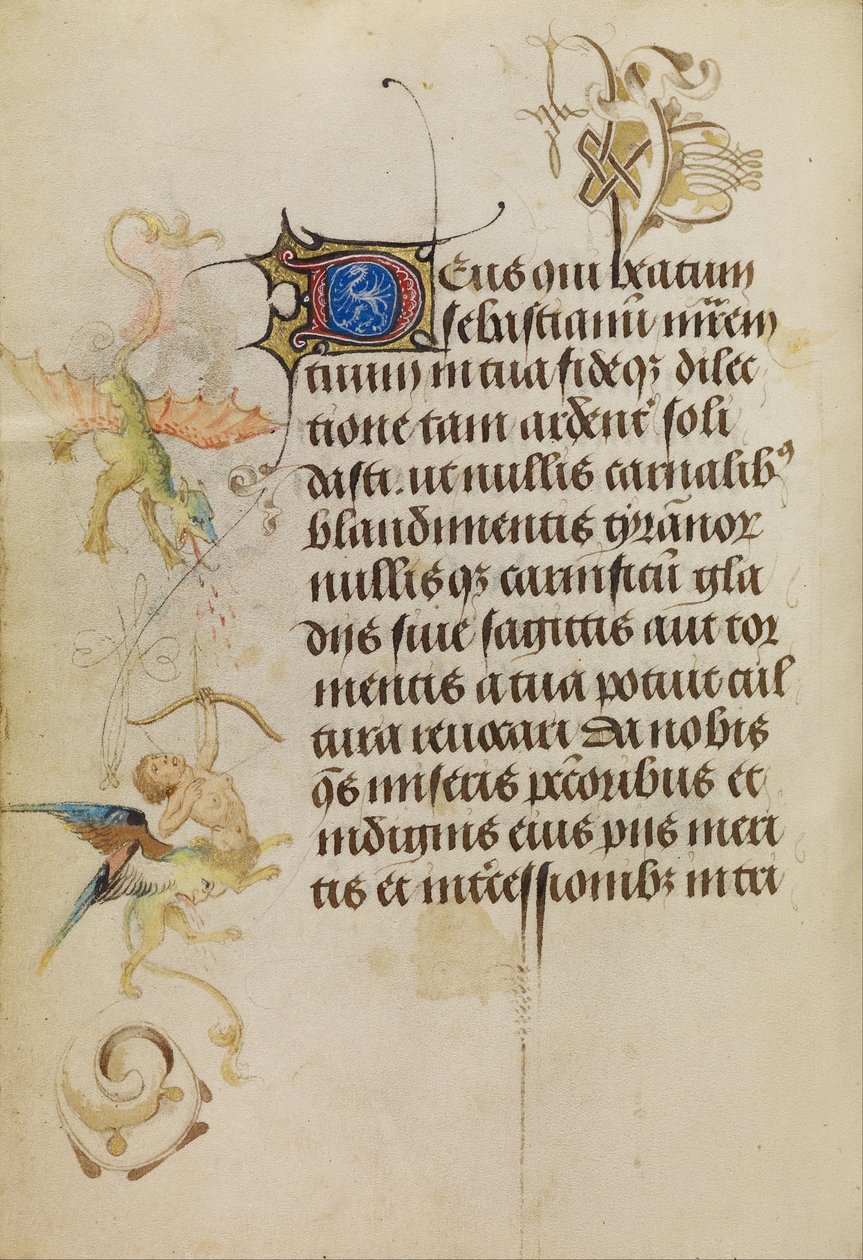 Deus qui beatum
sebastianū mr̄em
tuum in tua fideqꝫ dilec
tione tam ardent͛ soli
dasti. ut nullis carnalibꝰ
blandimentis tyrānor
nullisqꝫ carnificū gla
dijs siue sagittis aut tor
mentis a tua potuit cul
tura reuocari Da nobis
qs̄ miseris pctōribus et
indignis eius pijs meri
tis et int͛cessionibꝫ in tri